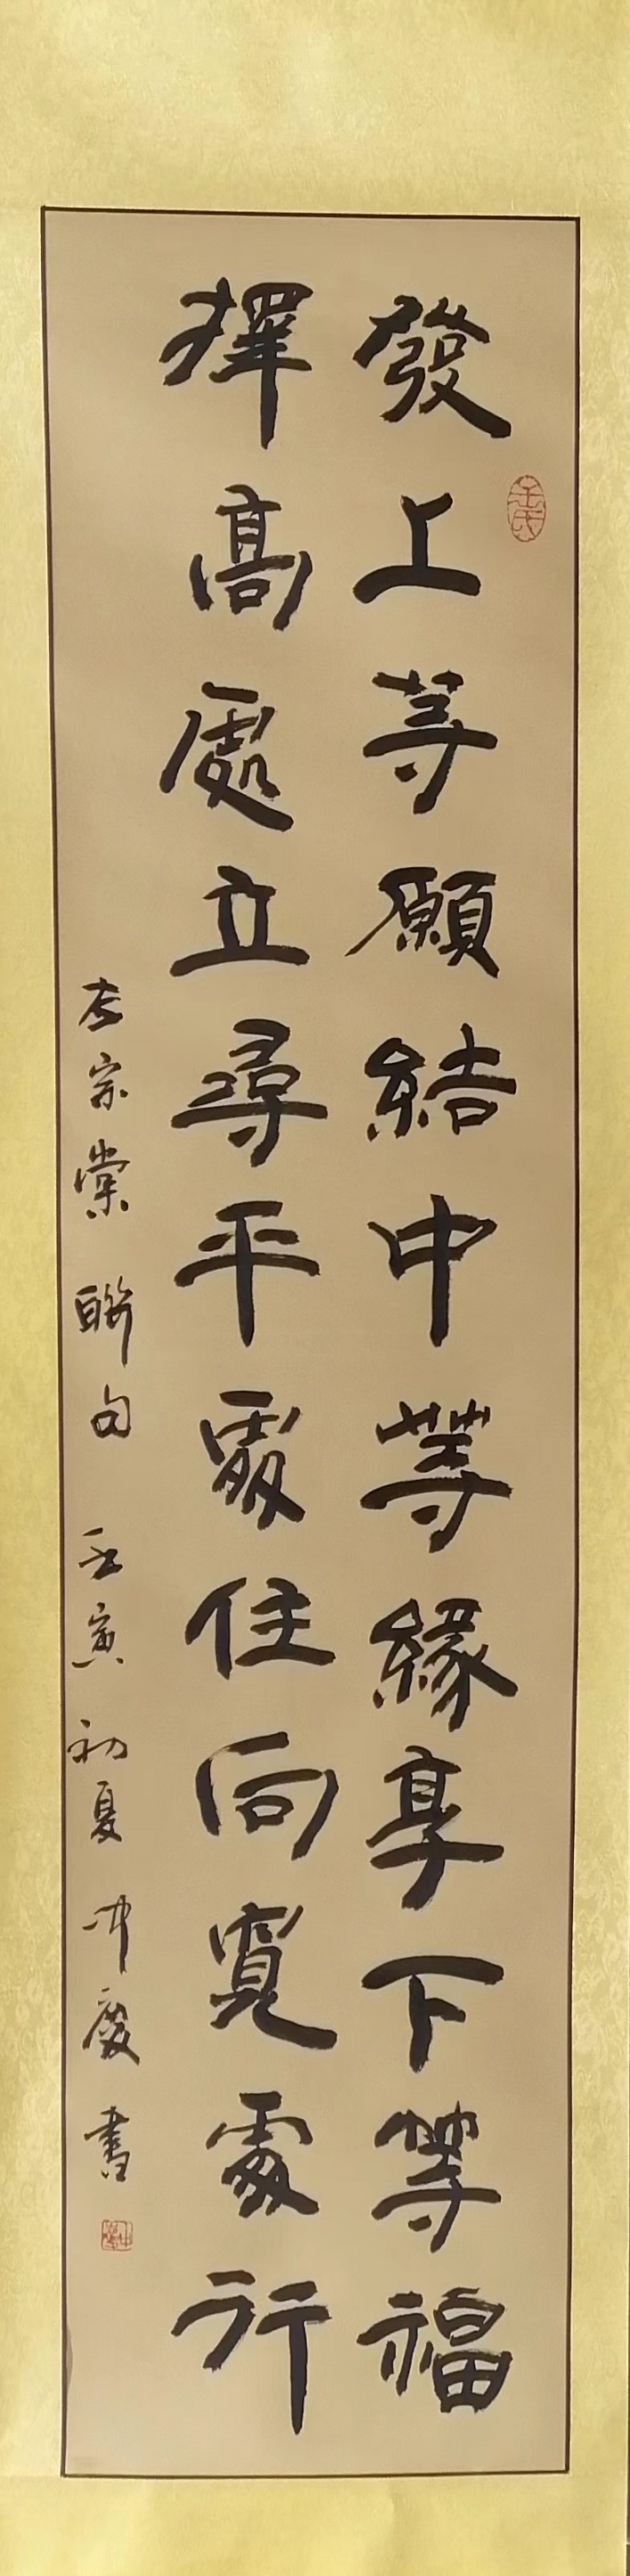 發上等願結中等緣享下等福
擇高處立尋平處住向寬處行
左宗棠聯句 壬寅初夏 中慶書
王氏